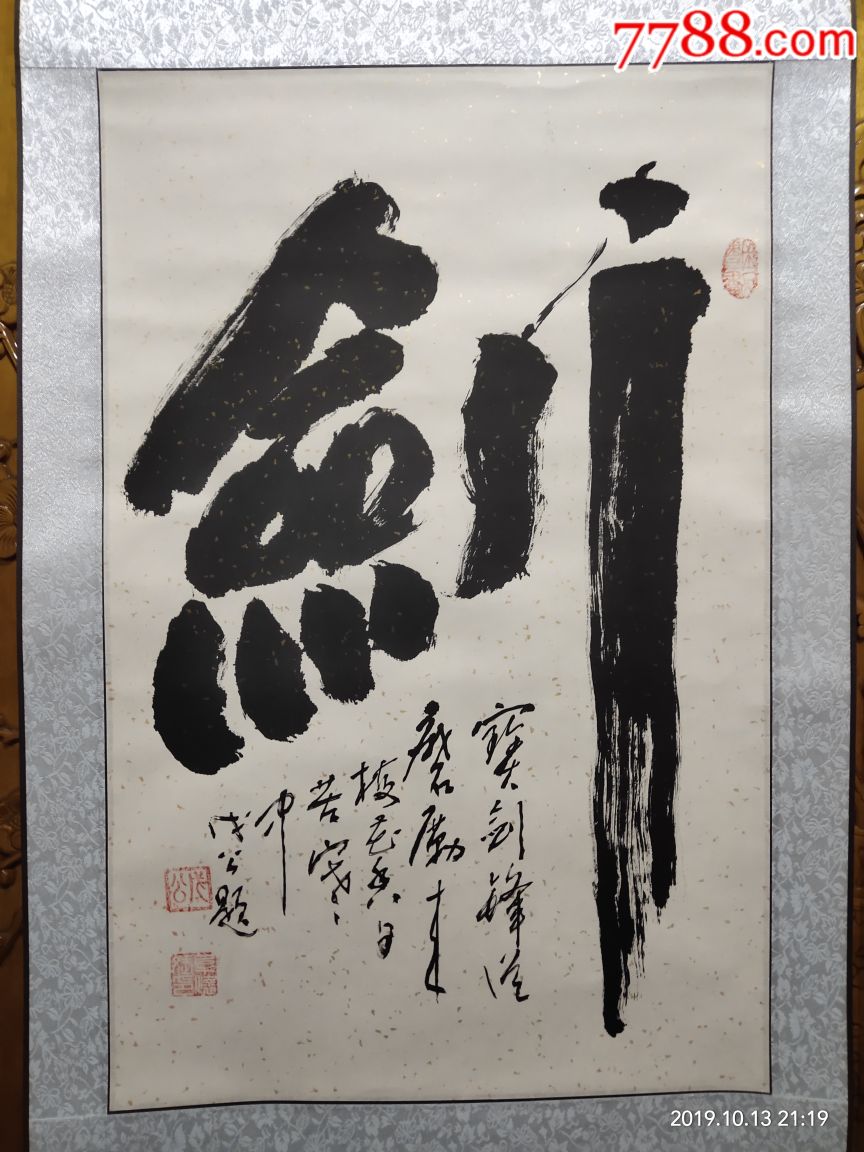 7788.com
劍
寶劍鋒從
磨勵来
梅花香自
苦寒
中
戊公題
2019.10.13 21:19